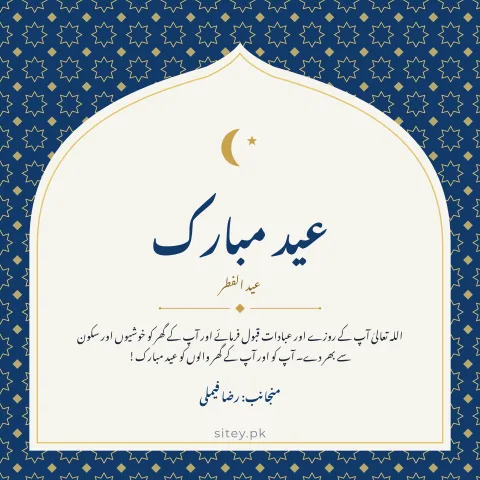 عید مبارک
عید الفطر
اللہ تعالیٰ آپ کے روزے اور عبادات قبول فرمائے اور آپ کے گھر کو خوشیوں اور سکون
سے بھر دے۔ آپ کو اور آپ کے گھر والوں کو عید مبارک !
منجانب: رضا فیملی
sitey.pk